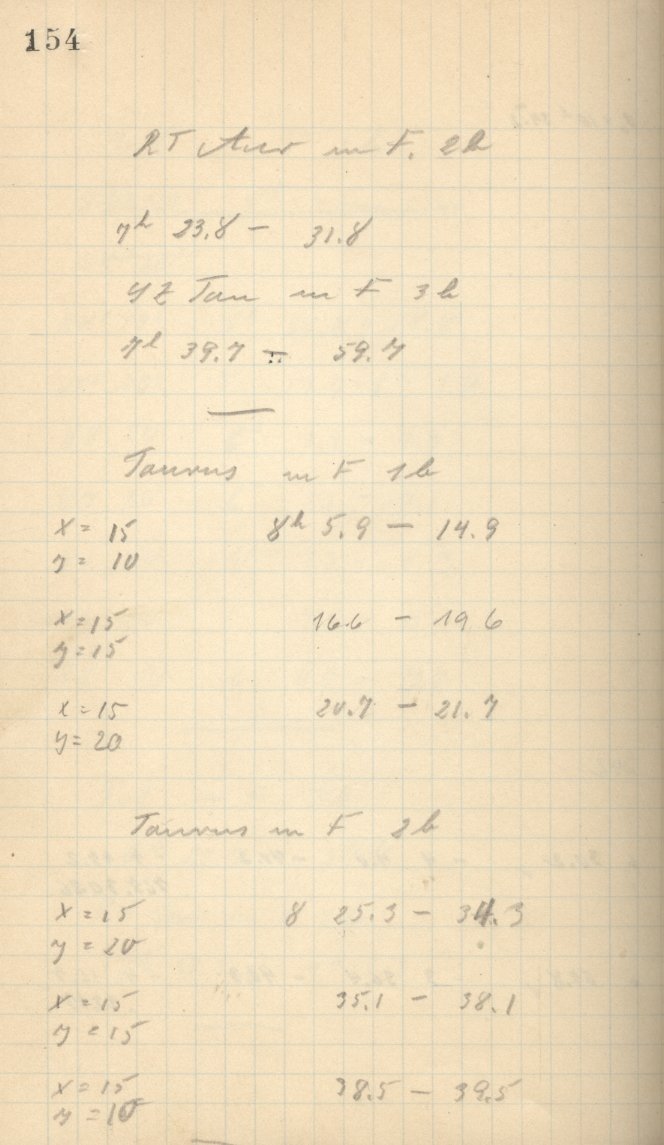 154
RT Aur in F. 2b
7h 23.8 — 31.8
YZ Tau in F 3b
7h 39.7 — 59.7
Taurus in F 1b
x = 15 8h 5.9 — 14.9
y = 10
x = 15 16.6 — 19 6
y = 15
x = 15 20.7 — 21.7
y = 20
Taurus in F 2b
x = 15 8 25.3 — 34.3
y = 20
x = 15 35.1 — 38.1
y = 15
x = 15 38.5 — 39.5
y = 10